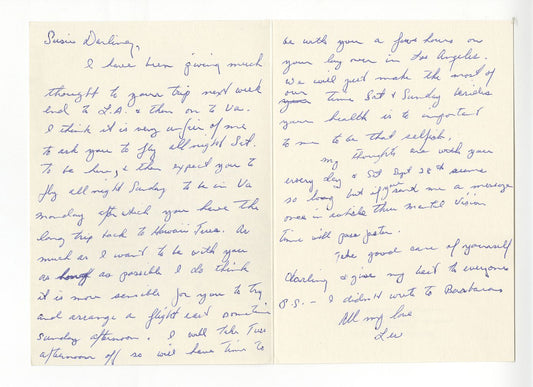 Susie Darling,
I have been giving much
thought to your trip next week
end to L.A. & then on to Va.
I think it is very unfair of me
to ask you to fly all night Sat.
to be here, & then expect you to
fly all night Sunday to be in Va
monday after which you have the
long trip back to Hawaii Tues. As
much as I want to be with you
as long as possible I do think
it is more sensible for you to try
and arrange a flight east sometime
Sunday afternoon. I will take Tues
afternoon off so will have time to
be with you a few hours on
your lay over in Los Angeles.
We will just make the most of
our time Sat & Sunday besides
your health is to important
to me to be that selfish.
my thoughts are with you
every day & Sat Sept 28 seems
so long but if you send me a message
once in awhile thru mental vision
time will pass faster.
Take good care of yourself
darling & give my best to everyone
P.S. - I didn't write to Barbara
All my love
Lew